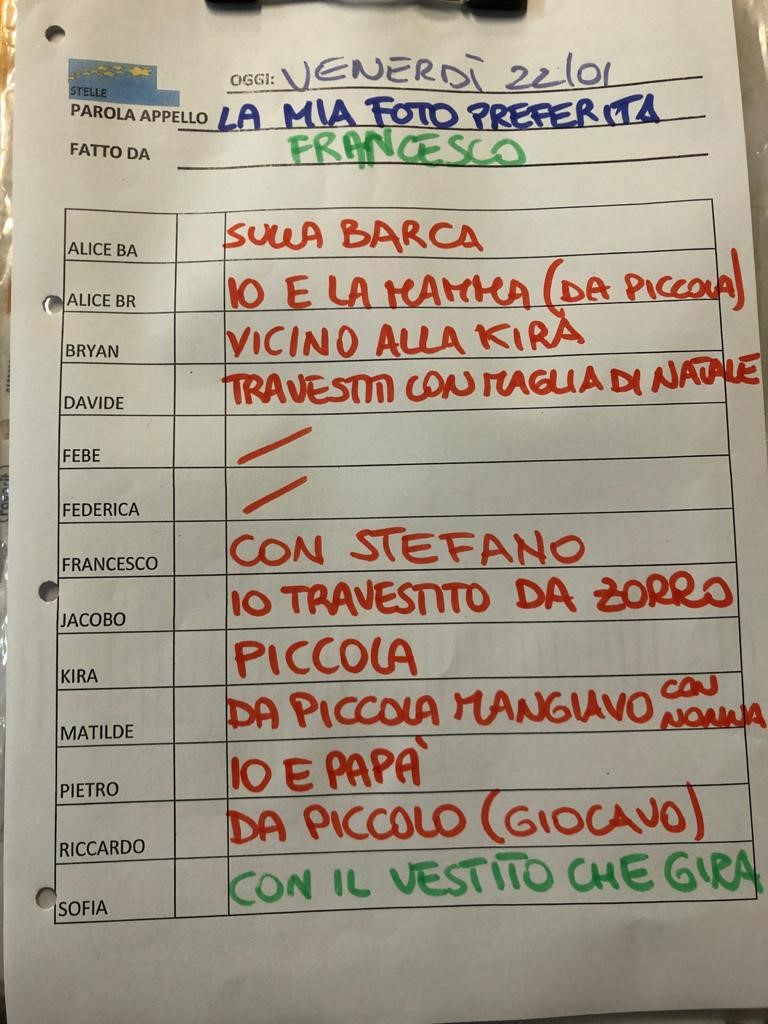 STELLE
OGGI: VENERDÌ 22/01
PAROLA APPELLO LA MIA FOTO PREFERITA
FATTO DA FRANCESCO
ALICE BA SULLA BARCA
ALICE BR IO E LA MAMMA (DA PICCOLA)
BRYAN VICINO ALLA KIRA
DAVIDE TRAVESTITI CON MAGLIA DI NATALE
FEBE /
FEDERICA /
FRANCESCO CON STEFANO
JACOBO IO TRAVESTITO DA ZORRO
KIRA PICCOLA
MATILDE DA PICCOLA MANGIAVO CON NONNA
PIETRO IO E PAPÀ
RICCARDO DA PICCOLO (GIOCAVO)
SOFIA CON IL VESTITO CHE GIRA